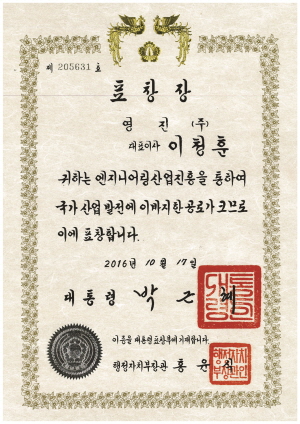 제 205631 호
표 창 장
영 진 (주)
대표이사 이 청 훈
귀하는 엔지니어링산업진흥을 통하여
국가 산업 발전에 이바지한 공로가 크므로
이에 표창합니다.
2016년 10월 17일
대 통 령 박 근 혜
이 증을 대통령표창부에 기재합니다.
행정자치부장관 홍 윤 식